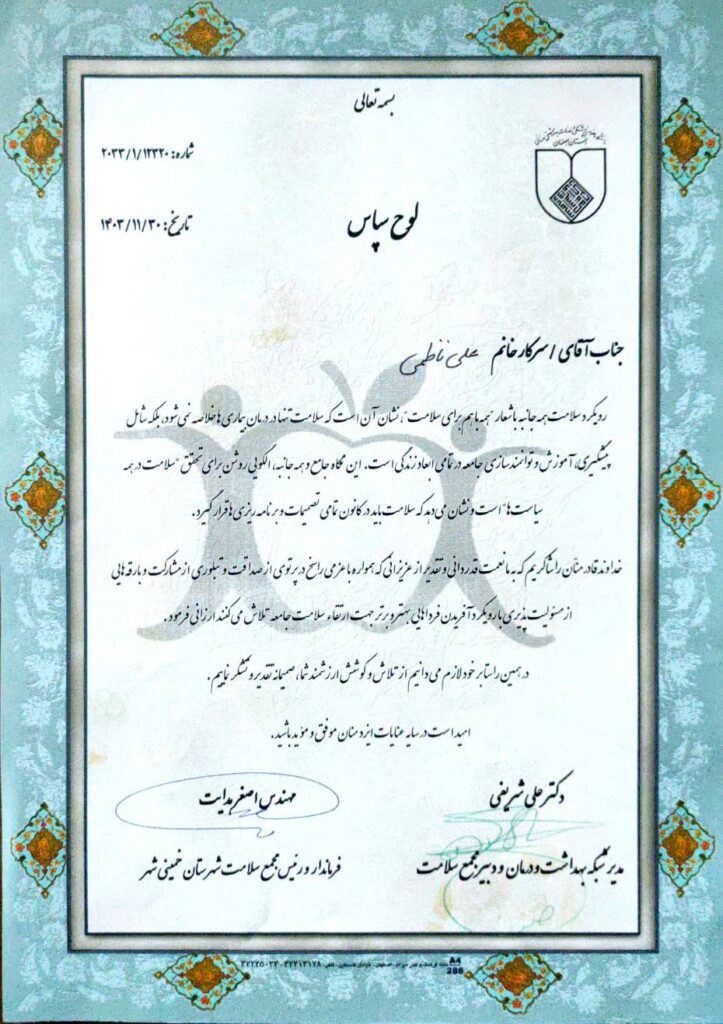 بسمه تعالی
شماره: ۲۰۳۳/۱/۱۲۳۲۰
دانشگاه علوم پزشکی و خدمات بهداشتی درمانی
استان اصفهان
تاریخ: ۱۴۰۳/۱۱/۳۰
لوح سپاس
جناب آقای / سرکار خانم علی ناظمی
رویکرد سلامت همه جانبه با شعار "همه با هم برای سلامت"، نشان آن است که سلامت تنها در درمان بیماری ها خلاصه نمی شود، بلکه شامل
پیشگیری، آموزش و توانمندسازی جامعه در تمامی ابعاد زندگی است. این نگاه جامع و همه جانبه، الگویی روشن برای تحقق "سلامت در همه
سیاست ها" است و نشان می دهد که سلامت باید در کانون تمامی تصمیمات و برنامه ریزی ها قرار گیرد.
خداوند قادر منّان را شاکریم که به ما نعمت قدردانی و تقدیر از عزیزانی که همواره با عزمی راسخ در پرتوی از صداقت و تبلوری از مشارکت و بارقه هایی
از مسئولیت پذیری با رویکرد آفریدن فرداهایی بهتر و برتر جهت ارتقاء سلامت جامعه تلاش می کنند ارزانی فرمود.
در همین راستا بر خود لازم می دانیم از تلاش و کوشش ارزشمند شما، صمیمانه تقدیر و تشکر نماییم.
امید است در سایه عنایات ایزد منان موفق و مؤید باشید.
دکتر علی شریفی
مهندس اصغر هدایت
مدیر شبکه بهداشت و درمان و دبیر مجمع سلامت
فرماندار و رئیس مجمع سلامت شهرستان خمینی شهر
A4
286